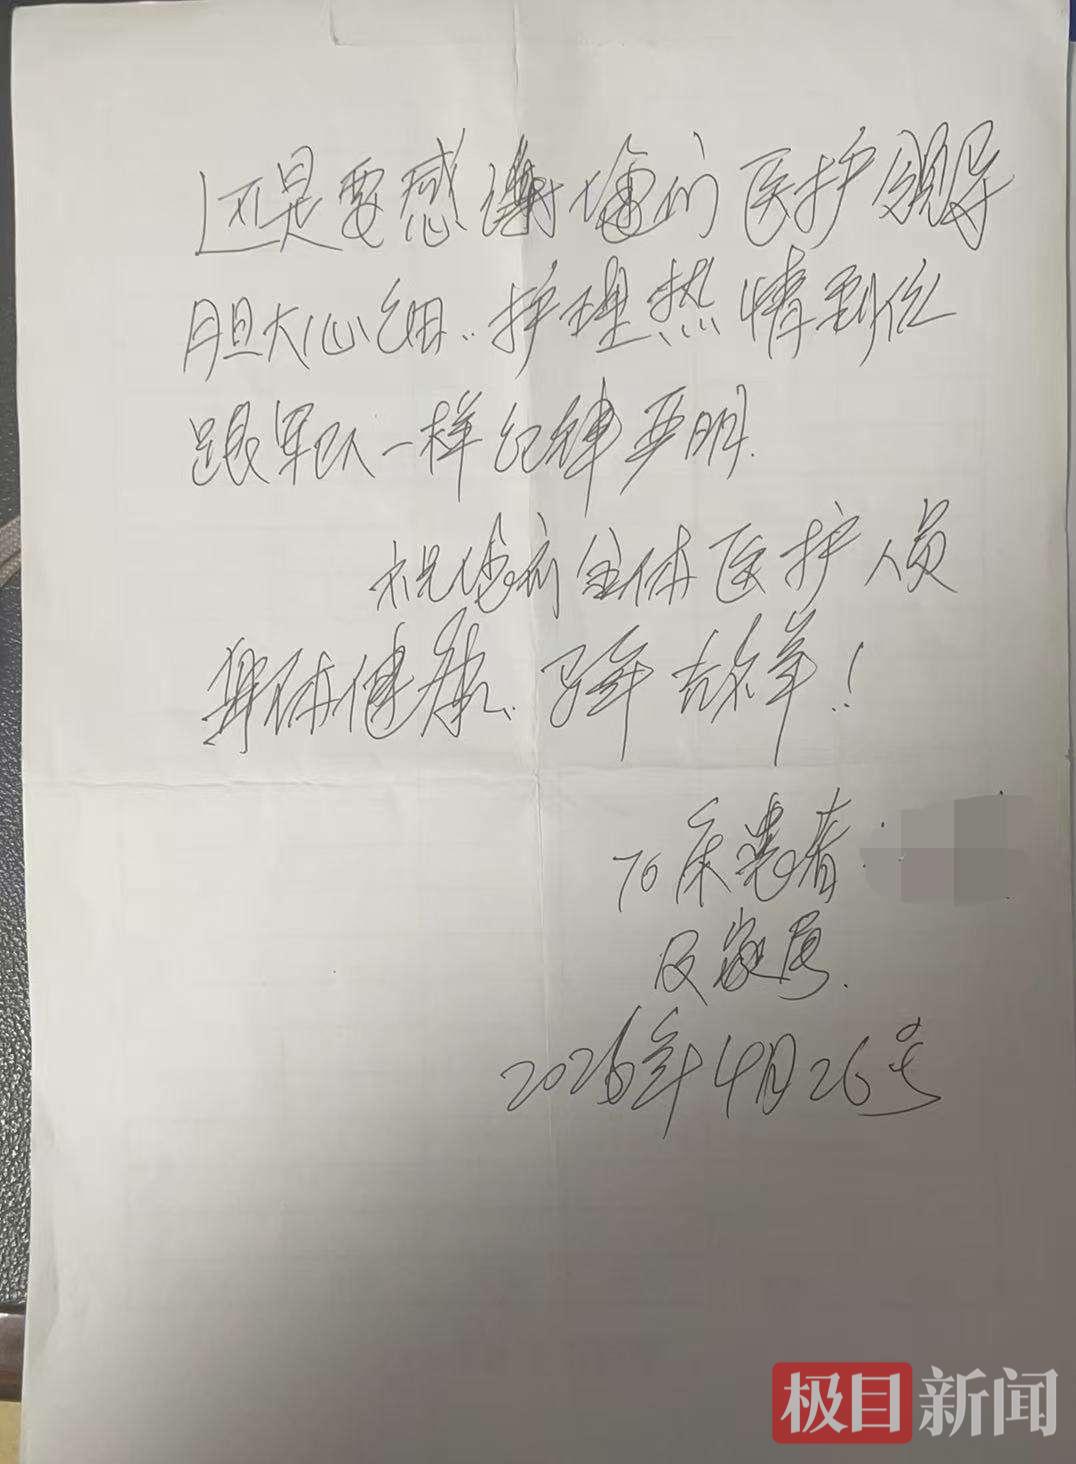 还是要感谢您们医护领导
胆大心细..护理热情到位
跟军队一样纪律严明.
祝您们全体医护人员
身体健康、马年吉祥！
76床患者:
及家属.
2026年4月26号
极目新闻